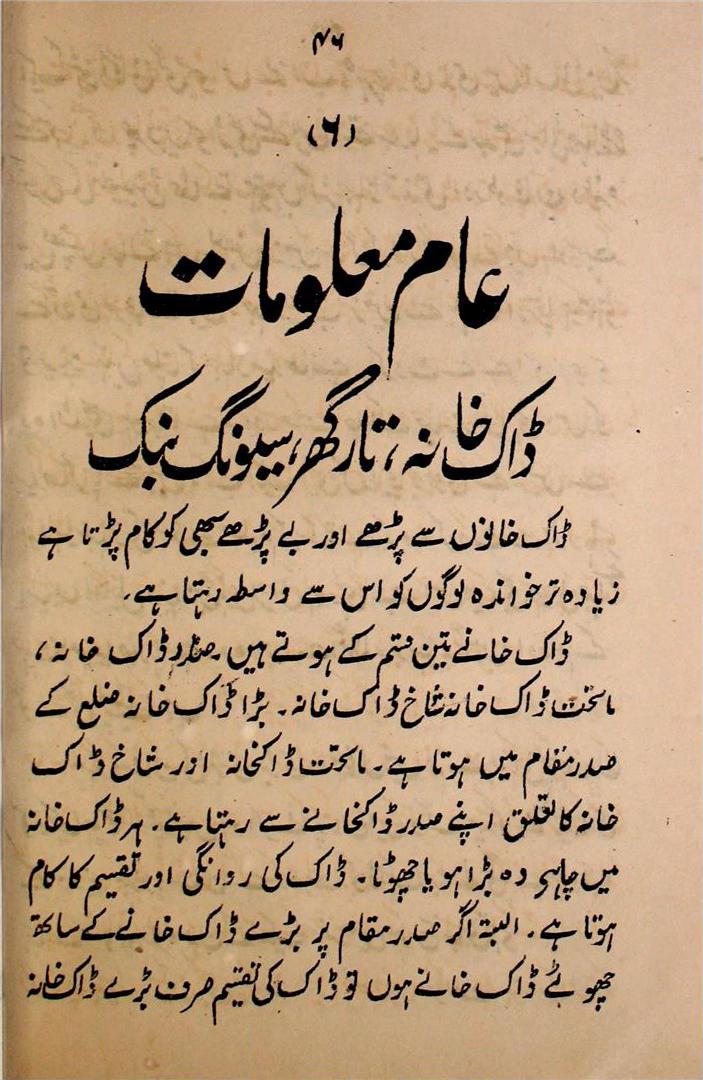 ۴۶
(۶)
عام معلومات
ڈاک خانہ، تار گھر، سیونگ بنک
ڈاک خانوں سے پڑھے اور بے پڑھے سبھی کو کام پڑتا ہے
زیادہ تر خواندہ لوگوں کو اس سے واسطہ رہتا ہے۔
ڈاک خانے تین قسم کے ہوتے ہیں۔ صدر ڈاک خانہ،
ماتحت ڈاک خانہ شاخ ڈاک خانہ۔ بڑا ڈاک خانہ ضلع کے
صدر مقام میں ہوتا ہے۔ ماتحت ڈاکخانہ اور شاخ ڈاک
خانہ کا تعلق اپنے صدر ڈاکخانے سے رہتا ہے۔ ہر ڈاک خانہ
میں چاہے وہ بڑا ہو یا چھوٹا۔ ڈاک کی روانگی اور تقسیم کا کام
ہوتا ہے۔ البتہ اگر صدر مقام پر بڑے ڈاک خانے کے ساتھ
چھوٹے ڈاک خانے ہوں تو ڈاک کی تقسیم صرف بڑے ڈاک خانہ